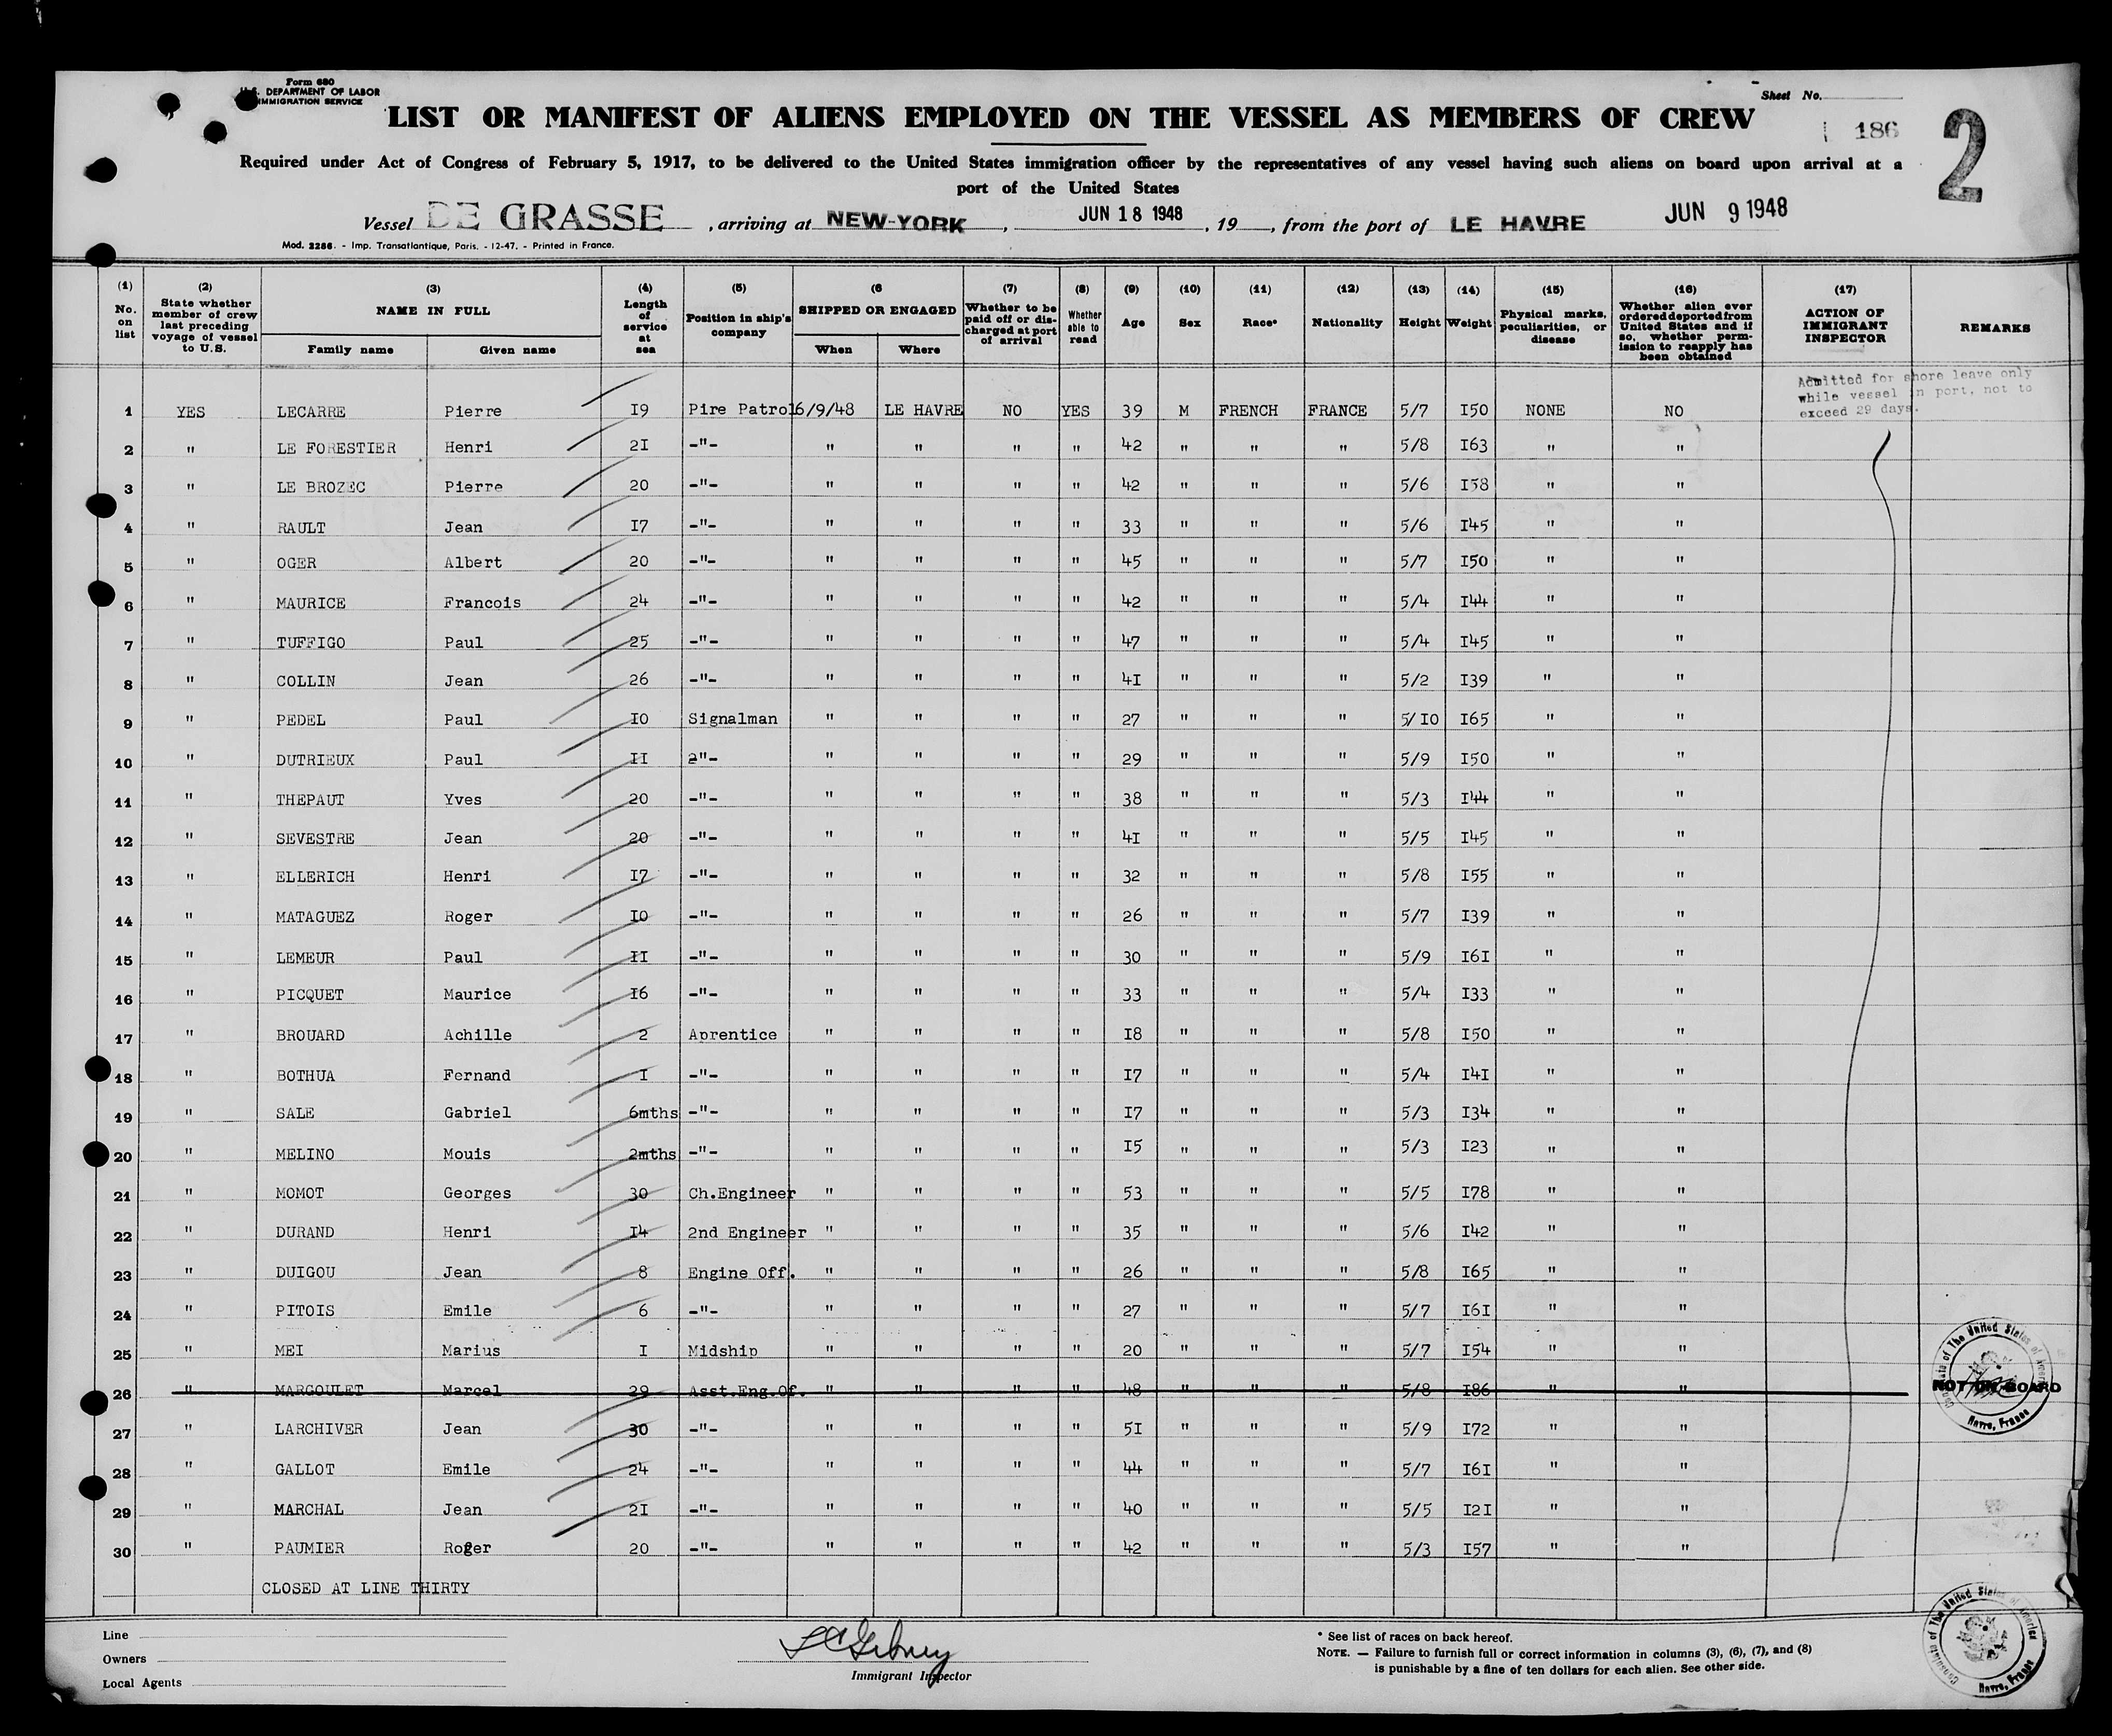 Form 680
U.S. DEPARTMENT OF LABOR
IMMIGRATION SERVICE
Sheet No.
LIST OR MANIFEST OF ALIENS EMPLOYED ON THE VESSEL AS MEMBERS OF CREW
186
2
Required under Act of Congress of February 5, 1917, to be delivered to the United States immigration officer by the representatives of any vessel having such aliens on board upon arrival at a
port of the United States
Vessel DE GRASSE, arriving at NEW-YORK, JUN 18 1948, 19, from the port of LE HAVRE JUN 9 1948
Mod. 2286. - Imp. Transatlantique, Paris. - 12-47. - Printed in France.
(1) No. on list (2) State whether member of crew last preceding voyage of vessel to U.S. (3) NAME IN FULL Family name Given name (4) Length of service at sea (5) Position in ship's company (6 SHIPPED OR ENGAGED When Where (7) Whether to be paid off or discharged at port of arrival (8) Whether able to read (9) Age (10) Sex (11) Race* (12) Nationality (13) Height (14) Weight (15) Physical marks, peculiarities, or disease (16) Whether alien ever ordered deported from United States and if so, whether permission to reapply has been obtained (17) ACTION OF IMMIGRANT INSPECTOR REMARKS
Admitted for shore leave only
while vessel in port, not to
exceed 29 days.
1 YES LECARRE Pierre I9 Pire Patrol 6/9/48 LE HAVRE NO YES 39 M FRENCH FRANCE 5/7 I50 NONE NO
2 " LE FORESTIER Henri 2I -"- " " " " 42 " " " 5/8 I63 " "
3 " LE BROZEC Pierre 20 -"- " " " " 42 " " " 5/6 I58 " "
4 " RAULT Jean I7 -"- " " " " 33 " " " 5/6 I45 " "
5 " OGER Albert 20 -"- " " " " 45 " " " 5/7 I50 " "
6 " MAURICE Francois 24 -"- " " " " 42 " " " 5/4 I44 " "
7 " TUFFIGO Paul 25 -"- " " " " 47 " " " 5/4 I45 " "
8 " COLLIN Jean 26 -"- " " " " 4I " " " 5/2 I39 " "
9 " PEDEL Paul IO Signalman " " " " 27 " " " 5/IO I65 " "
10 " DUTRIEUX Paul II 2"- " " " " 29 " " " 5/9 I50 " "
11 " THEPAUT Yves 20 -"- " " " " 38 " " " 5/3 I44 " "
12 " SEVESTRE Jean 20 -"- " " " " 4I " " " 5/5 I45 " "
13 " ELLERICH Henri I7 -"- " " " " 32 " " " 5/8 I55 " "
14 " MATAGUEZ Roger IO -"- " " " " 26 " " " 5/7 I39 " "
15 " LEMEUR Paul II -"- " " " " 30 " " " 5/9 I6I " "
16 " PICQUET Maurice I6 -"- " " " " 33 " " " 5/4 I33 " "
17 " BROUARD Achille 2 Aprentice " " " " I8 " " " 5/8 I50 " "
18 " BOTHUA Fernand I -"- " " " " I7 " " " 5/4 I4I " "
19 " SALE Gabriel 6mths -"- " " " " I7 " " " 5/3 I34 " "
20 " MELINO Mouis 2mths -"- " " " " I5 " " " 5/3 I23 " "
21 " MOMOT Georges 30 Ch.Engineer " " " " 53 " " " 5/5 I78 " "
22 " DURAND Henri I4 2nd Engineer " " " " 35 " " " 5/6 I42 " "
23 " DUIGOU Jean 8 Engine Off. " " " " 26 " " " 5/8 I65 " "
24 " PITOIS Emile 6 -"- " " " " 27 " " " 5/7 I6I " "
25 " MEI Marius I Midship " " " " 20 " " " 5/7 I54 " "
26 " MARGOULET Marcel 29 Asst.Eng.Of. " " " " 48 " " " 5/8 I86 " " NOT ON BOARD
27 " LARCHIVER Jean 30 -"- " " " " 5I " " " 5/9 I72 " "
28 " GALLOT Emile 24 -"- " " " " 44 " " " 5/7 I6I " "
29 " MARCHAL Jean 2I -"- " " " " 40 " " " 5/5 I2I " "
30 " PAUMIER Roger 20 -"- " " " " 42 " " " 5/3 I57 " "
CLOSED AT LINE THIRTY
Consulate of The United States of America
Havre, France
Line
Owners
Local Agents
Immigrant Inspector
* See list of races on back hereof.
NOTE. — Failure to furnish full or correct information in columns (3), (6), (7), and (8)
is punishable by a fine of ten dollars for each alien. See other side.
Consulate of The United States of America
Havre, France